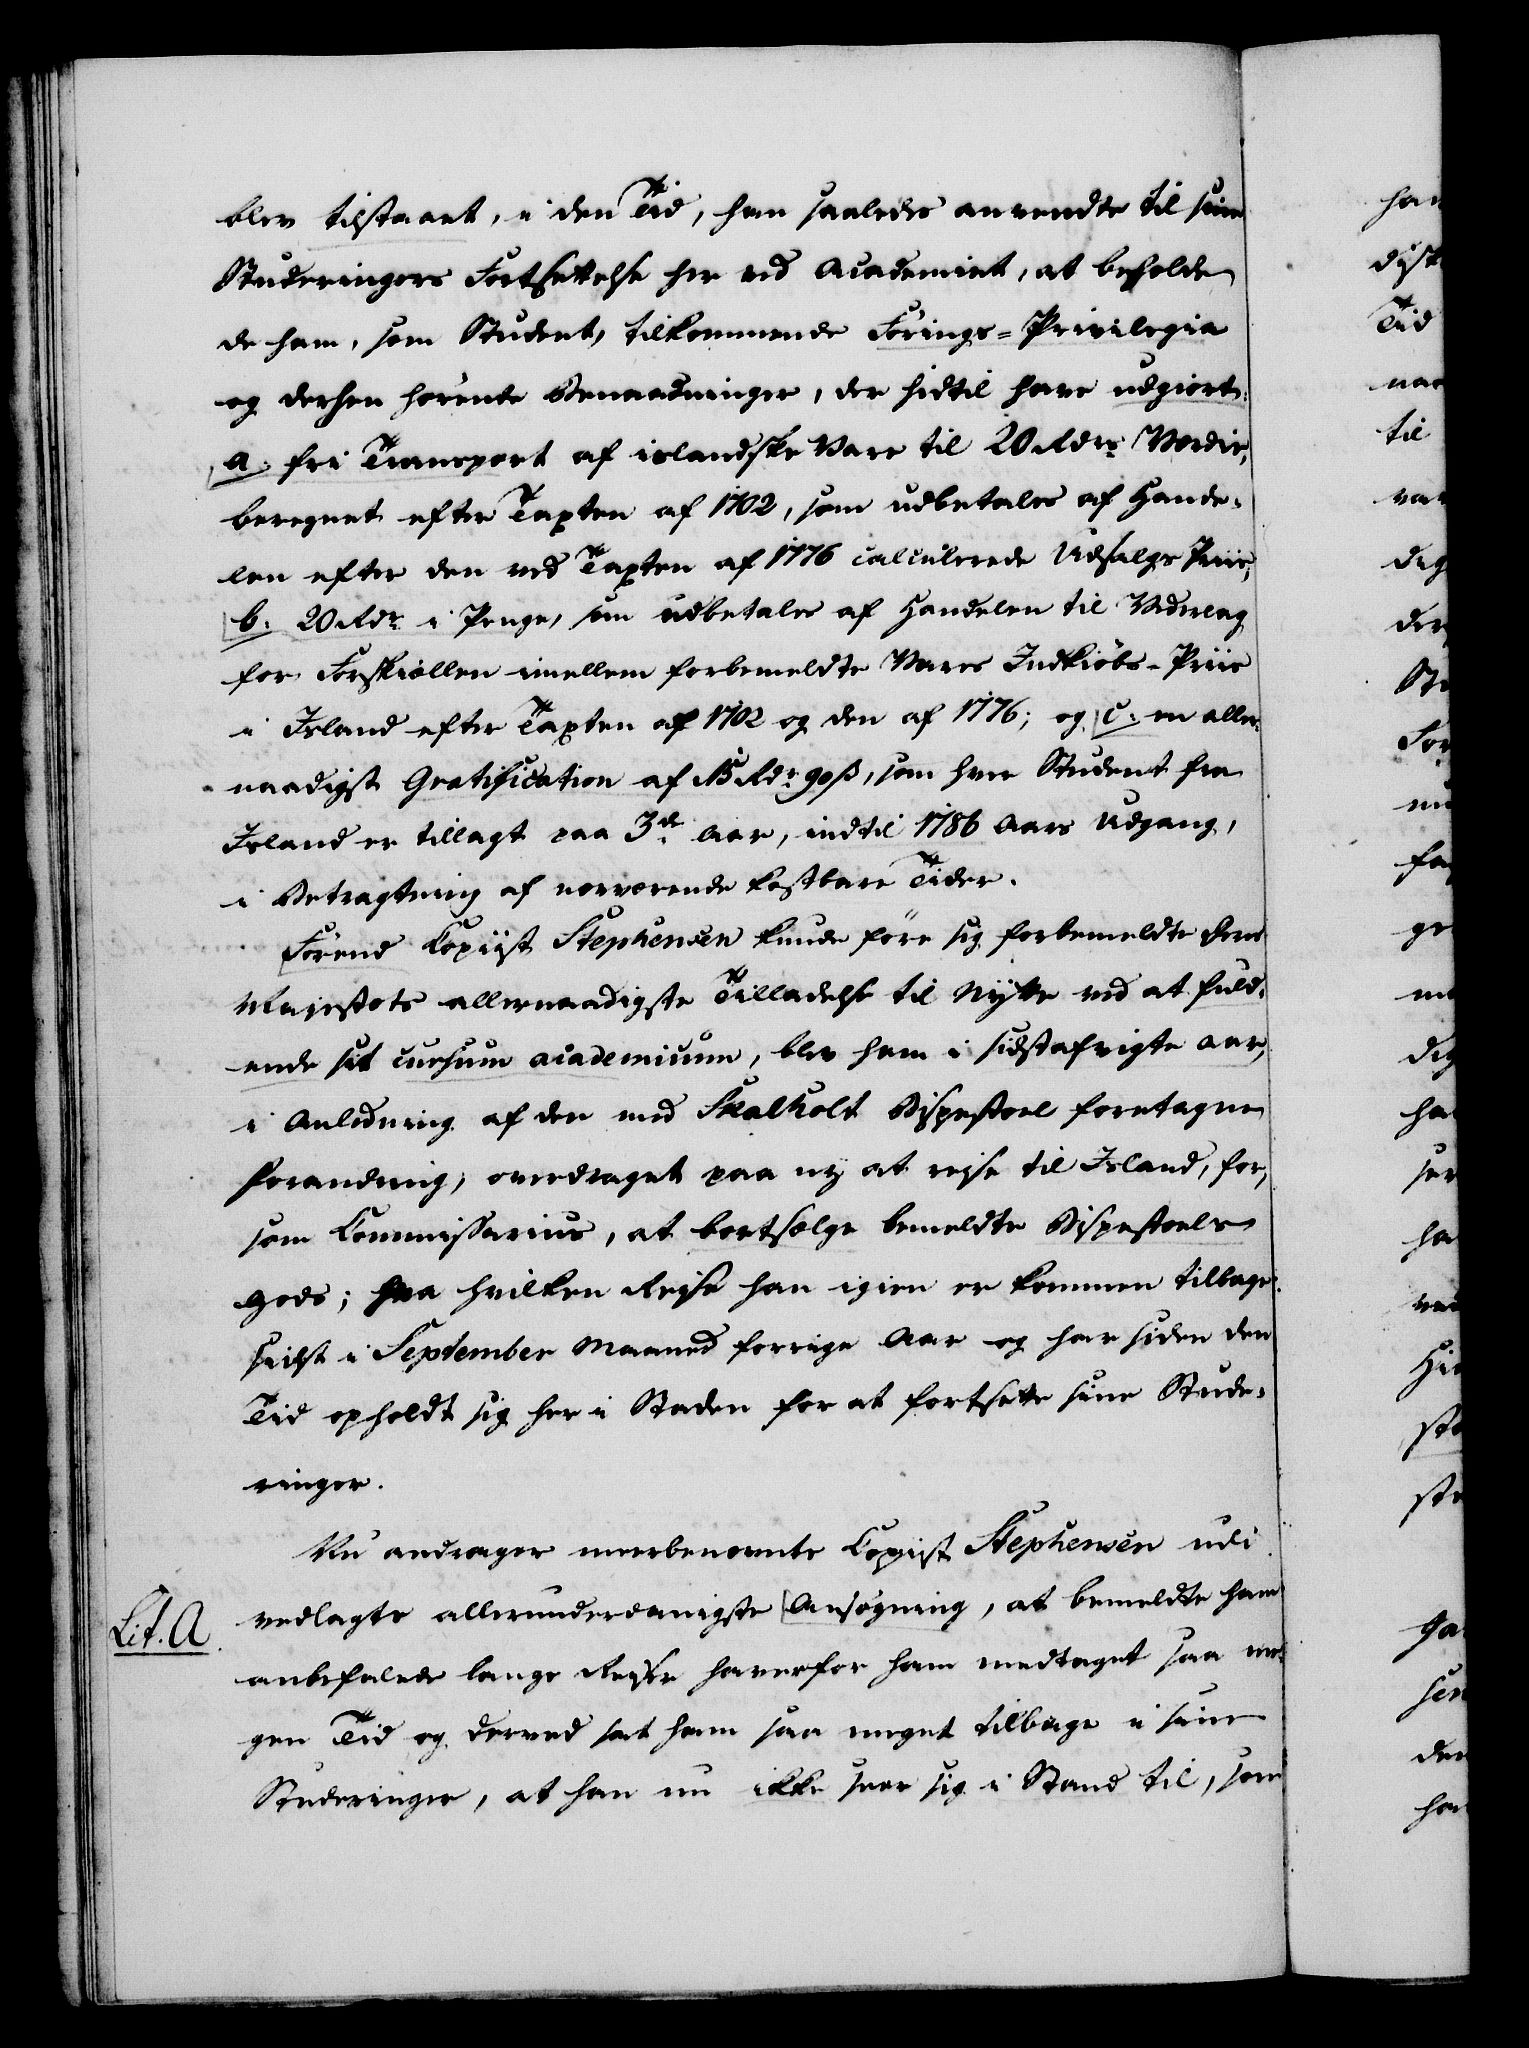 blev tilstaaet, i den Tid, han saaledes anvendte til sine
Studeringers Fortsættelse her ved Academiet, at beholde
de ham, som Student, tilkommende Förings-Privilegia
og derhen hörende Benaadninger, der hidtil have udgiort:
a. fri Transport af islandske Vare til 20 Rdrs Værdie,
beregnet efter Taxten af 1702, som udbetales af Hande-
len efter den ved Taxten af 1776 calculerede Udsalgs Priis;
b. 20 Rdr i Penge, som udbetales af Handelen til Vederlag
for Forskiællen imellem forbemeldte Vares Indkiöbs-Priis
i Island efter Taxten af 1702 og den af 1776; og c. en aller-
naadigst Gratification af 15 Rdr 90 ß, som hver Student fra
Island er tillagt paa 3de Aar, indtil 1786 Aars Udgang,
i Betragtning af nærværende kostbare Tider.
Förend Copiist Stephensen kunde före sig forbemeldte Deres
Majestæts allernaadigste Tilladelse til Nytte ved at fuld-
ende sit cursum academicum, blev ham i sidstafvigte Aar,
i Anledning af den med Skalholt Bispestoel foretagne
Forandring, overdraget paa ny at rejse til Island, for,
som Commissarius, at bortsælge bemeldte Bispestoels
Gods; fra hvilken Rejse han igien er kommen tilbage
sidst i September Maaned forrige Aar og har siden den
Tid opholdt sig her i Staden for at fortsætte sine Stude-
ringer.
Nu andrager meerbenævnte Copiist Stephensen udi
Lit. A.
vedlagte allerunderdanigste Ansögning, at bemeldte ham
anbefalede lange Rejser have for ham medtaget saa me-
gen Tid og derved sat ham saa meget tilbage i sine
Studeringer, at han nu ikke seer sig i Stand til, som